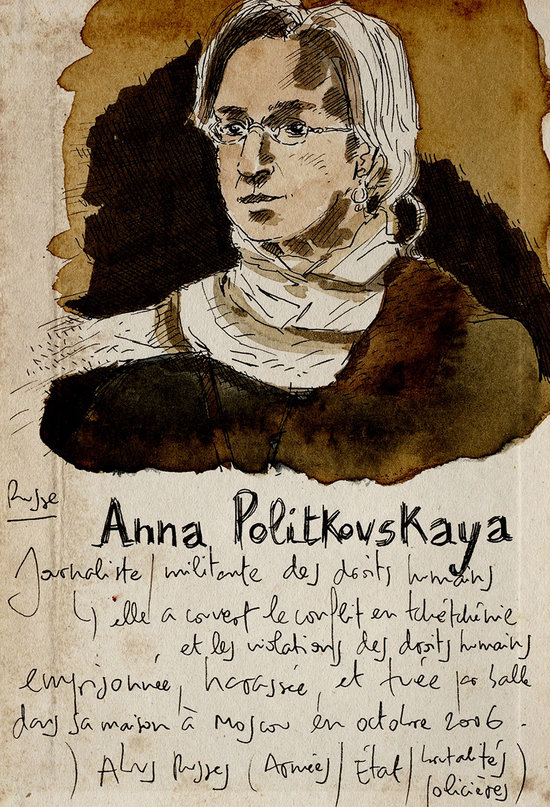 Russe
Anna Politkovskaya
Journaliste / militante des droits humains
↳ elle a couvert le conflit en tchétchénie
et les violations des droits humains
emprisonnée, harassée, et tuée par balle
dans sa maison à Moscou en octobre 2006.
) Abus Russes (Armées / État / brutalités
policières)